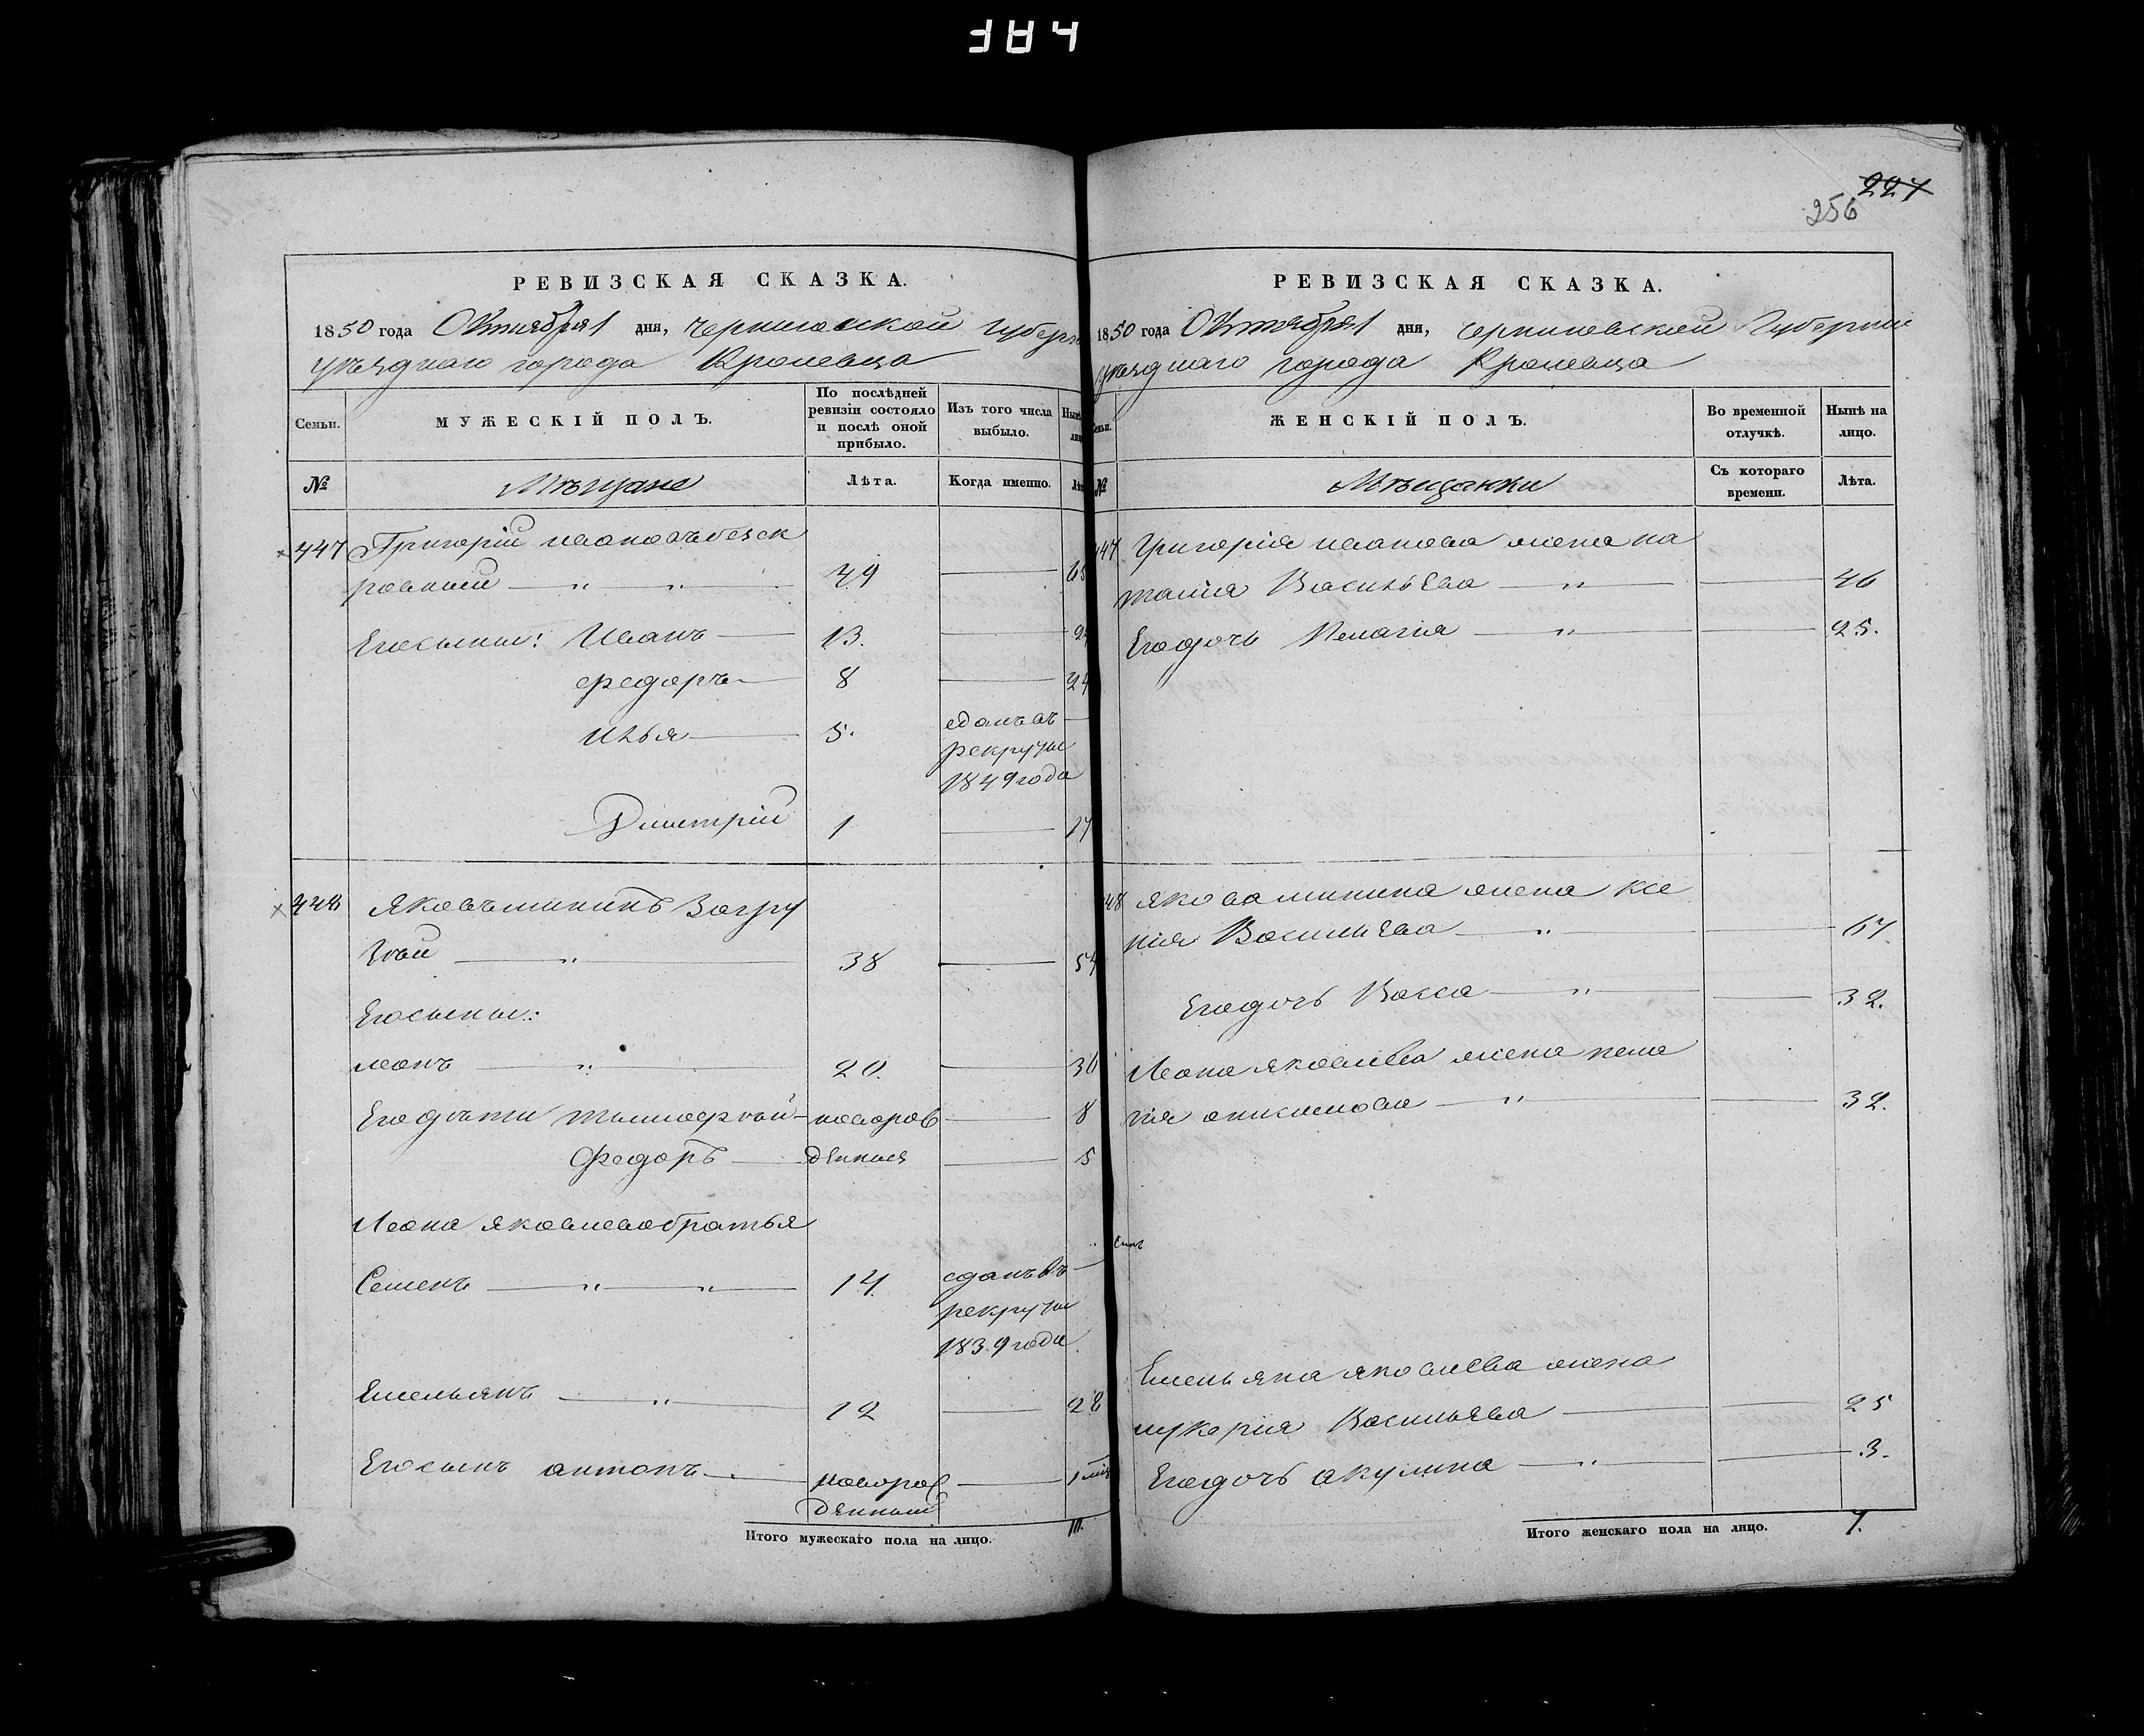 227
256
РЕВИЗСКАЯ СКАЗКА.
1850 года Октября 1 дня, Черниговской Губерн
уѣзднаго города Кролевца
Семьи.
МУЖЕСКІЙ ПОЛЪ.
По послѣдней ревизіи состояло и послѣ оной прибыло.
Изъ того числа выбыло.
Нынѣ
№
Мѣщане
Лѣта.
Когда именно.
447 Григорій ивановъ безск
ровный — " — " — 49 — 65
Его сыны: Иванъ — 13. — 29
федоръ — 8 — 24
илья — 5. сданъ въ —
рекруты
1849 года
Дмитрій 1 — 17
448 Яковъ мининъ Загру
38 — 54
Его сыны:
леонъ — " — 20. — 36
Его дѣти — новорож — 8
Федоръ — денныя — 5
Леона яковлева братья
Семенъ — " — " — 14 сданъ въ —
рекруты
1839 года
Емельянъ — " — 12 — 28
Его сынъ антонъ — новорож — 1
денный
Итого мужескаго пола на лицо.
10.
РЕВИЗСКАЯ СКАЗКА.
1850 года Октября 1 дня, Черниговской Губерніи
уѣзднаго города Кролевца
ЖЕНСКІЙ ПОЛЪ.
Во временной отлучкѣ.
Нынѣ на лицо.
№
Мѣщанки
Съ котораго времени.
Лѣта.
447 Григорія иванова жена на
талія Васильева — " — — 46
Его дочь Пелагія — " — — 25.
48 якова минина жена ксе
нія Васильева — " — — 57
Его дочь Васса — " — — 32.
Леона яковлева жена пела
гія анисимова — " — — 32.
Емельяна яковлева жена
лукерія Васильева — — 25
Его дочь акулина — " — — 3.
Итого женскаго пола на лицо.
7.